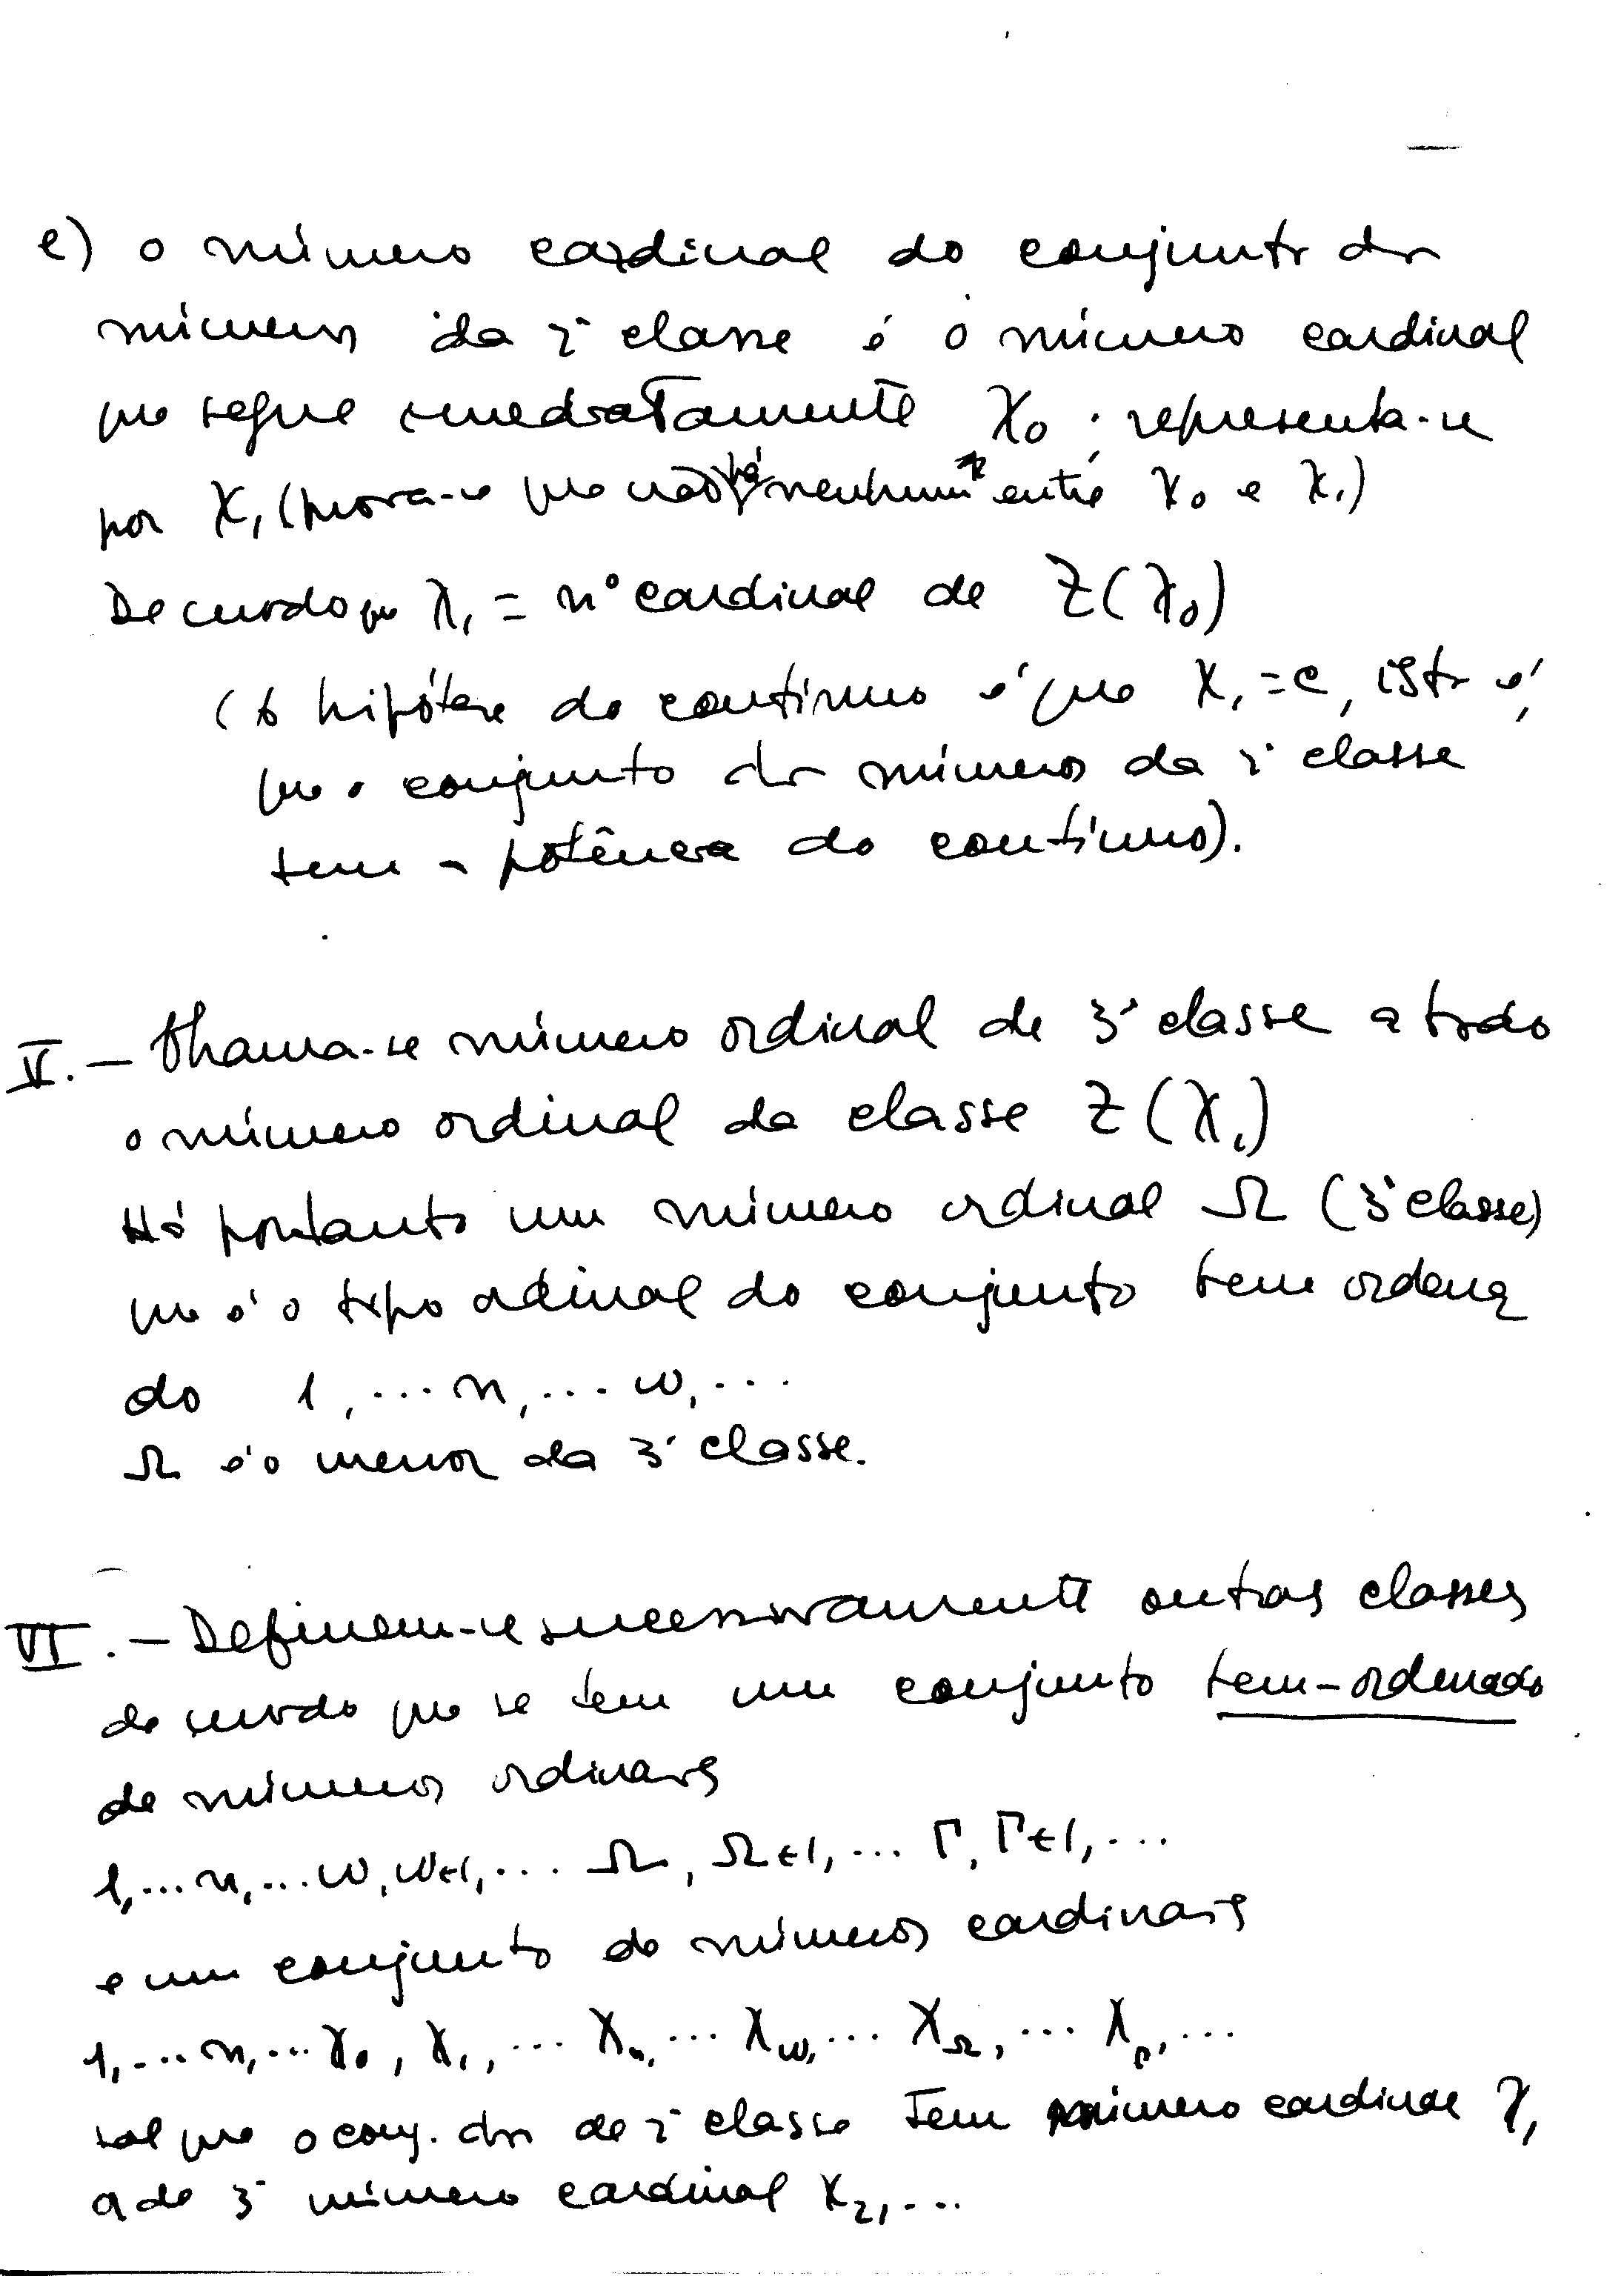 e) o número cardinal do conjunto dos
números da 2ª classe é o número cardinal
que segue imediatamente χ₀ ; representa-se
por χ₁ (prova-se que não há nenhum entre χ₀ e χ₁)
De modo que χ₁ = nº cardinal de Z(χ₀)
(A hipótese do contínuo é que χ₁ = c, isto é,
que o conjunto dos números da 2ª classe
tem a potência do contínuo).
V. — Chama-se número ordinal de 3ª classe a todo
o número ordinal da classe Z(χ₁)
Há portanto um número ordinal Ω (3ª classe)
que é o tipo ordinal do conjunto bem ordena
do 1, ... n, ... ω, ...
Ω é o menor da 3ª classe.
VI. — Definem-se sucessivamente outras classes
de modo que se tem um conjunto bem-ordenado
de números ordinais
1, ... n, ... ω, ω+1, ... Ω, Ω+1, ... Γ, Γ+1, ...
e um conjunto de números cardinais
1, ... n, ... χ₀, χ₁, ... χₙ, ... χ_ω, ... χ_Ω, ... χ_Γ, ...
tal que o conj. dos de 2ª classe tem número cardinal χ₁
a de 3ª número cardinal χ₂, ...